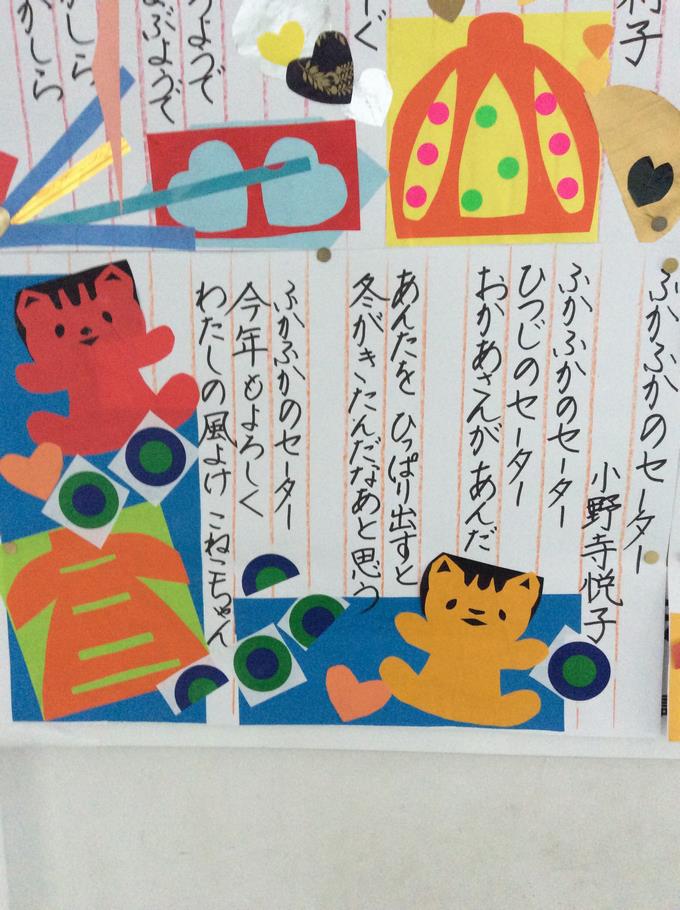 子
ぐ
ようで
ぶようで
しら
しら
ふかふかのセーター
小野寺悦子
ふかふかのセーター
ひつじのセーター
おかあさんがあんだ
あんたを ひっぱり出すと
冬がきたんだなあと思う
ふかふかのセーター
今年もよろしく
わたしの風よけ こねこちゃん